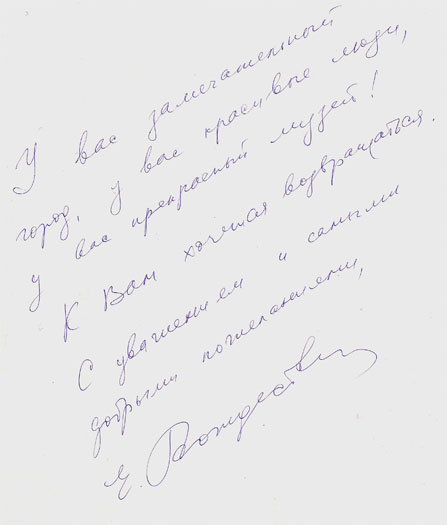 У вас замечательный
город, у вас красивые люди,
у вас прекрасный музей!
К Вам хочется возвращаться.
С уважением и самыми
добрыми пожеланиями,
Е.